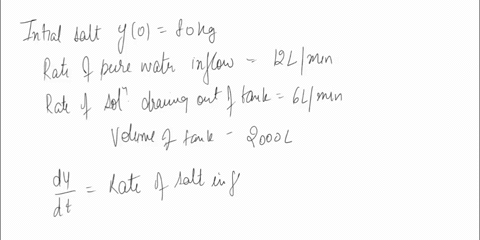 Initial salt y(0) = 80kg
Rate of pure water inflow = 12L/min
Rate of solⁿ drawing out of tank = 6L/min
Volume of tank - 2000L
dy/dt = Rate of salt inf